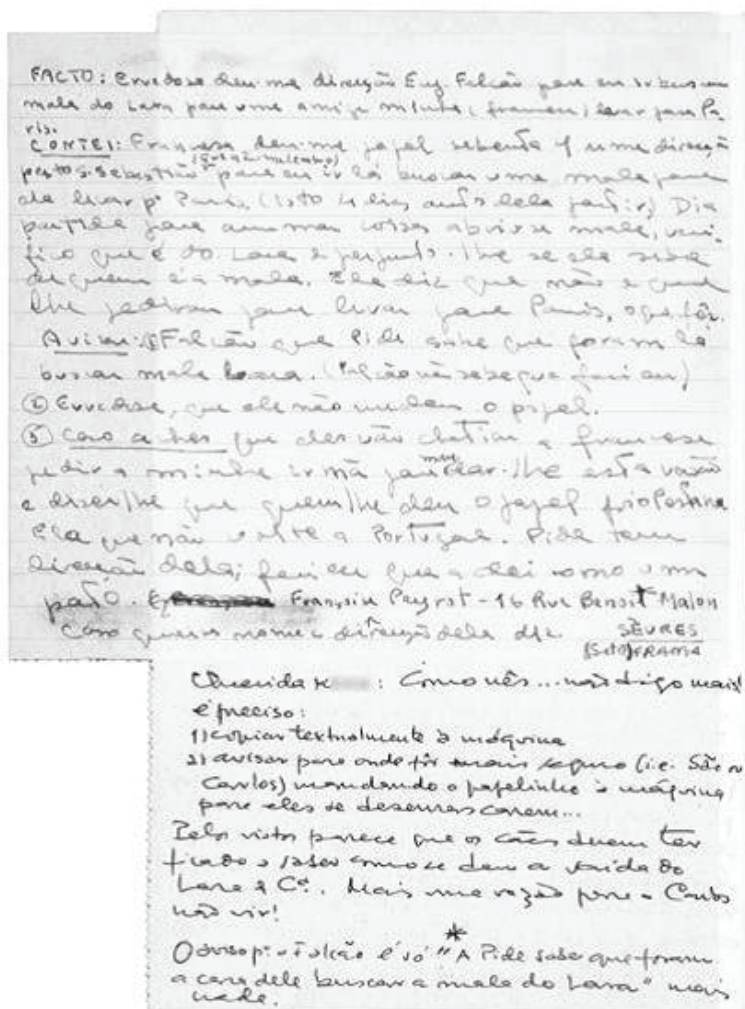 FACTO: Ervedosa deu-me direcção Eng. Falcão para eu ir buscar
mala do Lara para uma amiga minha (francesa) levar para Pa-
ris.
CONTEI: Francesa deu-me papel sebento c/ uma direcção
perto S. Sebastião para eu ir lá buscar uma mala para
ela levar pª Paris. (Isto 4 dias antes dela partir) Dia
partida para arrumar coisas abriu-se mala, veri-
fico que é do Lara e pergunto-lhe se ela sabe
de quem é a mala. Ela diz que não e que
lhe pediram para levar para Paris, o que fêz.
Avisar: ① Falcão que Pide sabe que foram lá
buscar mala Lara. (Falcão não sabe que fui eu)
② Ervedosa, que ele não mudem o papel.
③ Caso aches que eles vão chatiar a francesa
pedir a minha irmã para mandar-lhe esta versão
e dizer-lhe que quem lhe deu o papel foi o Pestana
Ela que não volte a Portugal. Pide tem
direcção dela; fui eu que a dei como uma
pato. Francine Peyrot - 16 Rue Benoit Malon
Caso queiras nome e direcção dela diz. SÈVRES
(S. et O) FRANÇA
Querida : Como vês... não digo mais!
é preciso:
1) copiar textualmente à máquina
2) avisar para onde fôr mais seguro (i.e. São ou
Carlos) mandando o papelinho à máquina
para eles se desenrascarem...
Pelos vistos parece que os cães devem ter
ficado a saber como se deu a saída do
Lara & Cª. Mais uma razão para o Carlos
não vir!
*
O aviso pª o Falcão é só "A Pide sabe que foram
a casa dele buscar a mala do Lara" mais
nada.